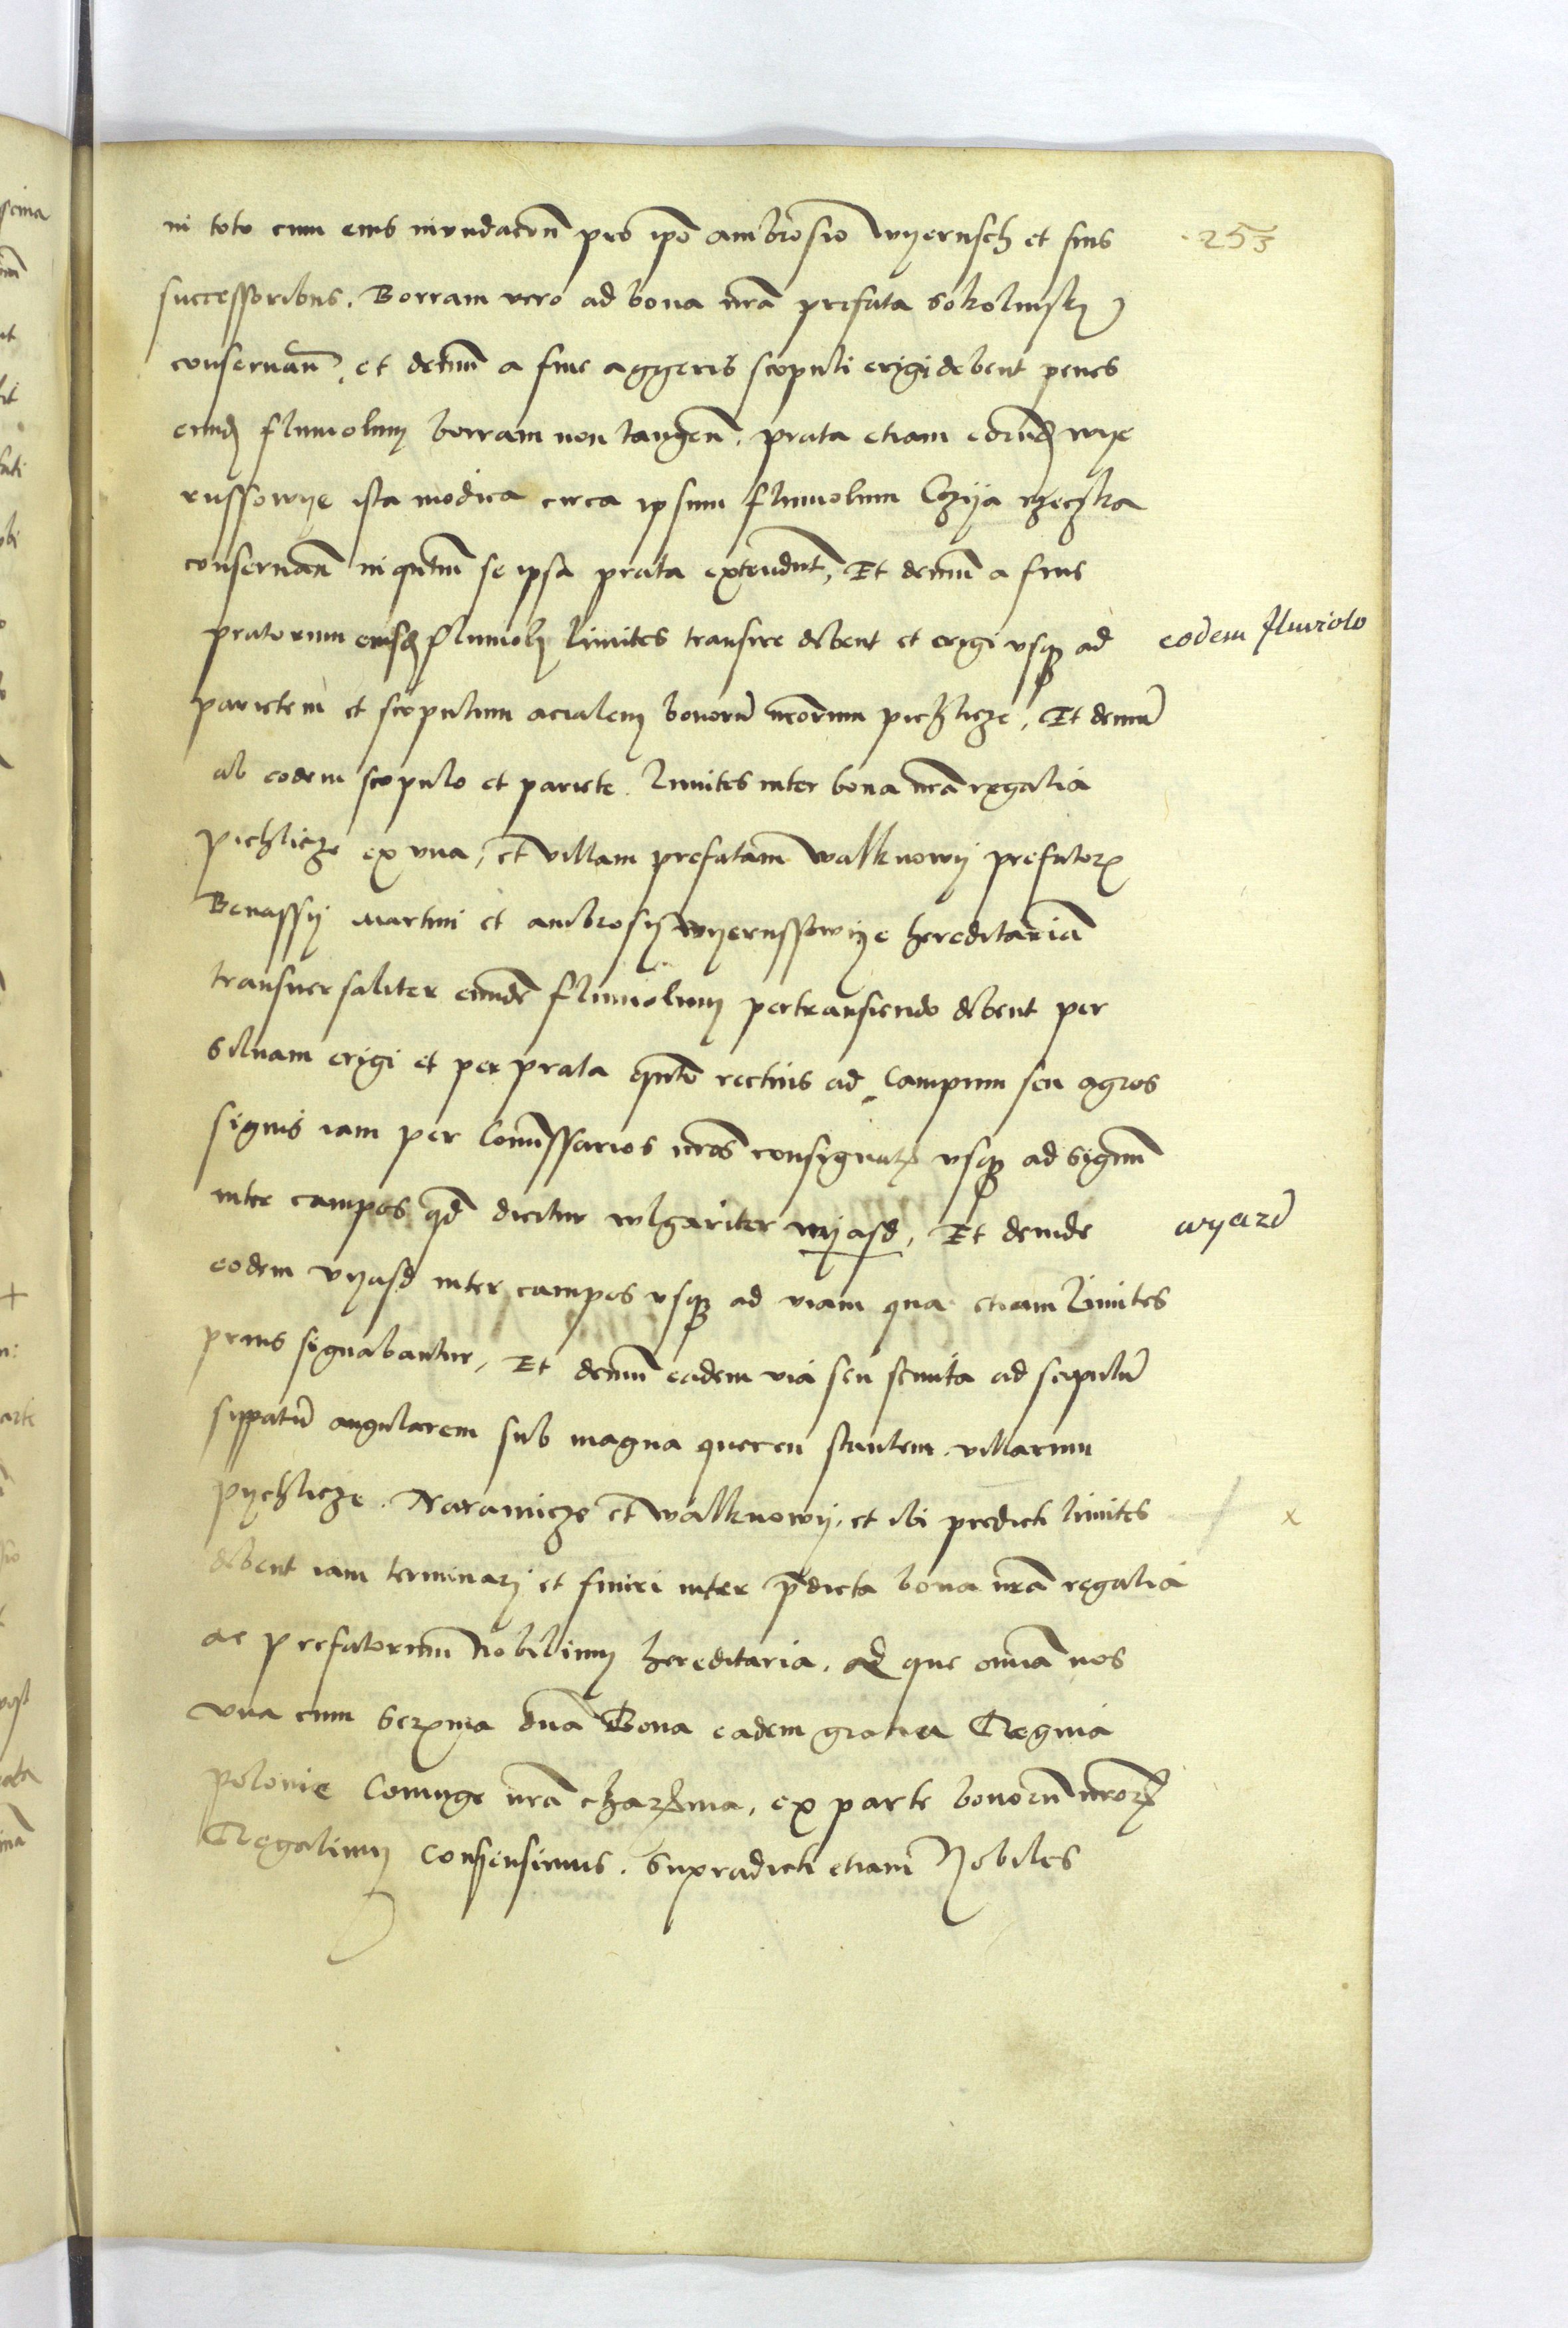 in toto cum eius inundacōn pro ipo ambrosio Wyerusch et suis
253
successoribus. Borram vero ad bona nrā prefata Sokolnsky
conservan̄, et demū a fine aggeris scopuli erigi debent penes
eundē fluuiolum borram non tangen̄. prata etiam eorundē wye
russowye ista modica circa ipsum fluuiolum Czyja rzeczka
conservan̄ inqntūm se ipsa prata extendūt, Et demum a finis
pratorum eiusdē fluuioli limites transire debent et erigi vsq ad
eodem fluviolo
parietem et scopulum acialem bonorū nrōrum pichlicze, Et demū
ab eodem scopulo et pariete. limites inter bona nrā regalia
pichlicze ex vna, et villam prefatam Walknowy prefator
Benassy Martini et ambrosy Wyerussowye hereditariā
transuersaliter eundē fluuiolum pertransiendo debent per
siluam erigi et per prata qnto rectius ad campum seu agros
signis iam per Comissarios nros consignat vsq ad signum
inter campos qd dicitur wlgariter wyasd, Et deinde
wyazd
eodem vyasd inter campos vsq ad viam qua etiam limites
prius signabantur, Et demū eadem via seu semita ad scopulū
sippatū angularem sub magna quercu stantem villarum
pychlicze. Naramicze et Walknowy. et ibi predicti limites
x
debent iam terminari et finiri inter pdicta bona nrā regalia
ac prefatorum Nobilium hereditaria. ad que omīa nos
vna cum Serma dnā Bona eadem gratia Regina
polonie Coniuge nrā charma, ex parte bonorū nror
Regalium consensimus. Supradicti etiam Nobiles